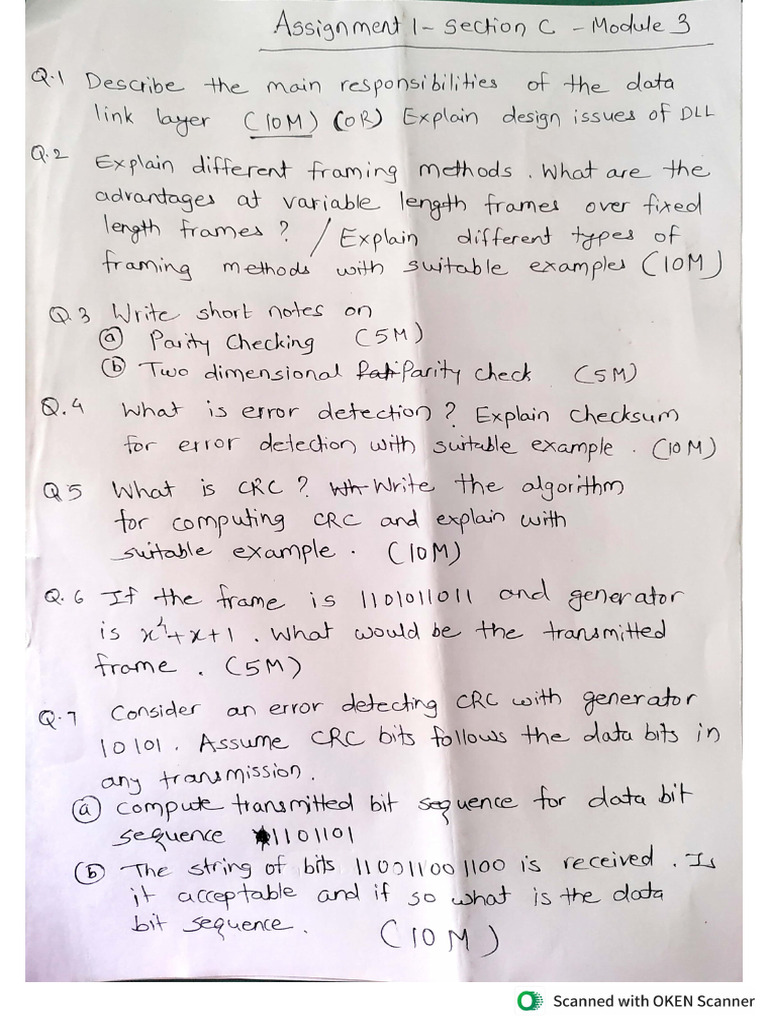 Assignment 1 - Section C - Module 3
Q.1 Describe the main responsibilities of the data
link layer (10M) (OR) Explain design issues of DLL
Q.2 Explain different framing methods. What are the
advantages at variable length frames over fixed
length frames? / Explain different types of
framing methods with suitable examples (10M)
Q.3 Write short notes on
(a) Parity Checking (5M)
(b) Two dimensional Parity check (5M)
Q.4 What is error detection? Explain Checksum
for error detection with suitable example. (10M)
Q5 What is CRC? Write the algorithm
for computing CRC and explain with
suitable example. (10M)
Q.6 If the frame is 1101011011 and generator
is x⁴+x+1. What would be the transmitted
frame. (5M)
Q.7 Consider an error detecting CRC with generator
10101. Assume CRC bits follows the data bits in
any transmission.
(a) compute transmitted bit sequence for data bit
sequence 1101101
(b) The string of bits 110011001100 is received. Is
it acceptable and if so what is the data
bit sequence. (10M)
Scanned with OKEN Scanner